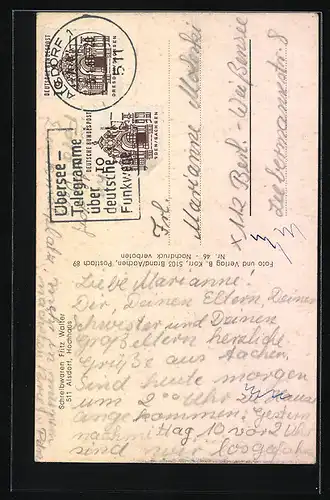 ALSDORF 1
511
DEUTSCHE BUNDESPOST
DRESDEN/SACHSEN
DEUTSCHE BUNDESPOST
Übersee-
Telegramme
über
deutsche
Funkwege
Frl.
Marianne
x 112 Berl. - Weißensee
8
Foto und Verlag B. Korr, 5105 Brand/Aachen, Postfach 89
Nr. 46 - Nachdruck verboten
Schreibwaren Fritz Wolter
511 Alsdorf, Hochhaus
Liebe Marianne.
Dir, Deinen Eltern, Deiner
Schwester und Deinen
Großeltern herzliche
Grüße aus Aachen.
Sind heute morgen
um 2 Uhr zu Hause
angekommen. Gestern
nachmittag 10 vor 2 Uhr
sind wir losgefahr